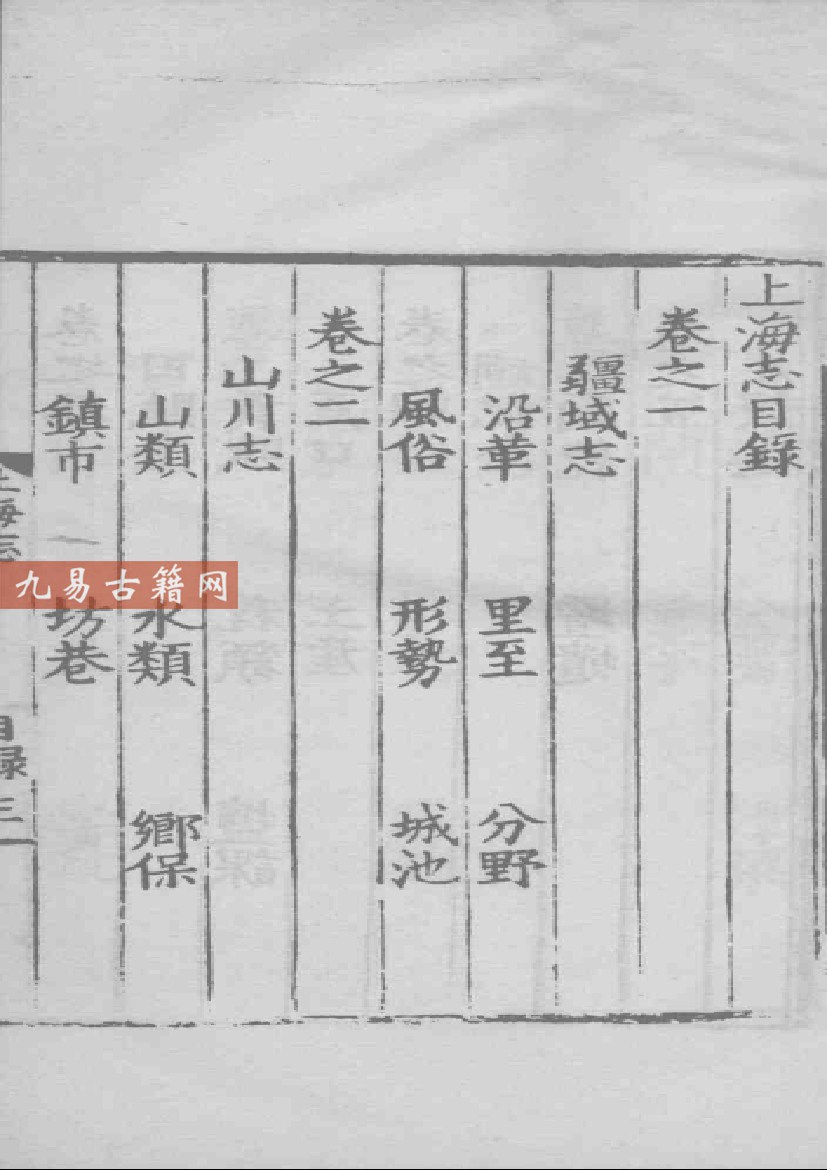 上海志目録
卷之一
疆域志
沿革 里至 分野
風俗 形勢 城池
卷之二
山川志
山類 水類 鄉保
鎮市 坊巷
上海志 目録 三
九易古籍网